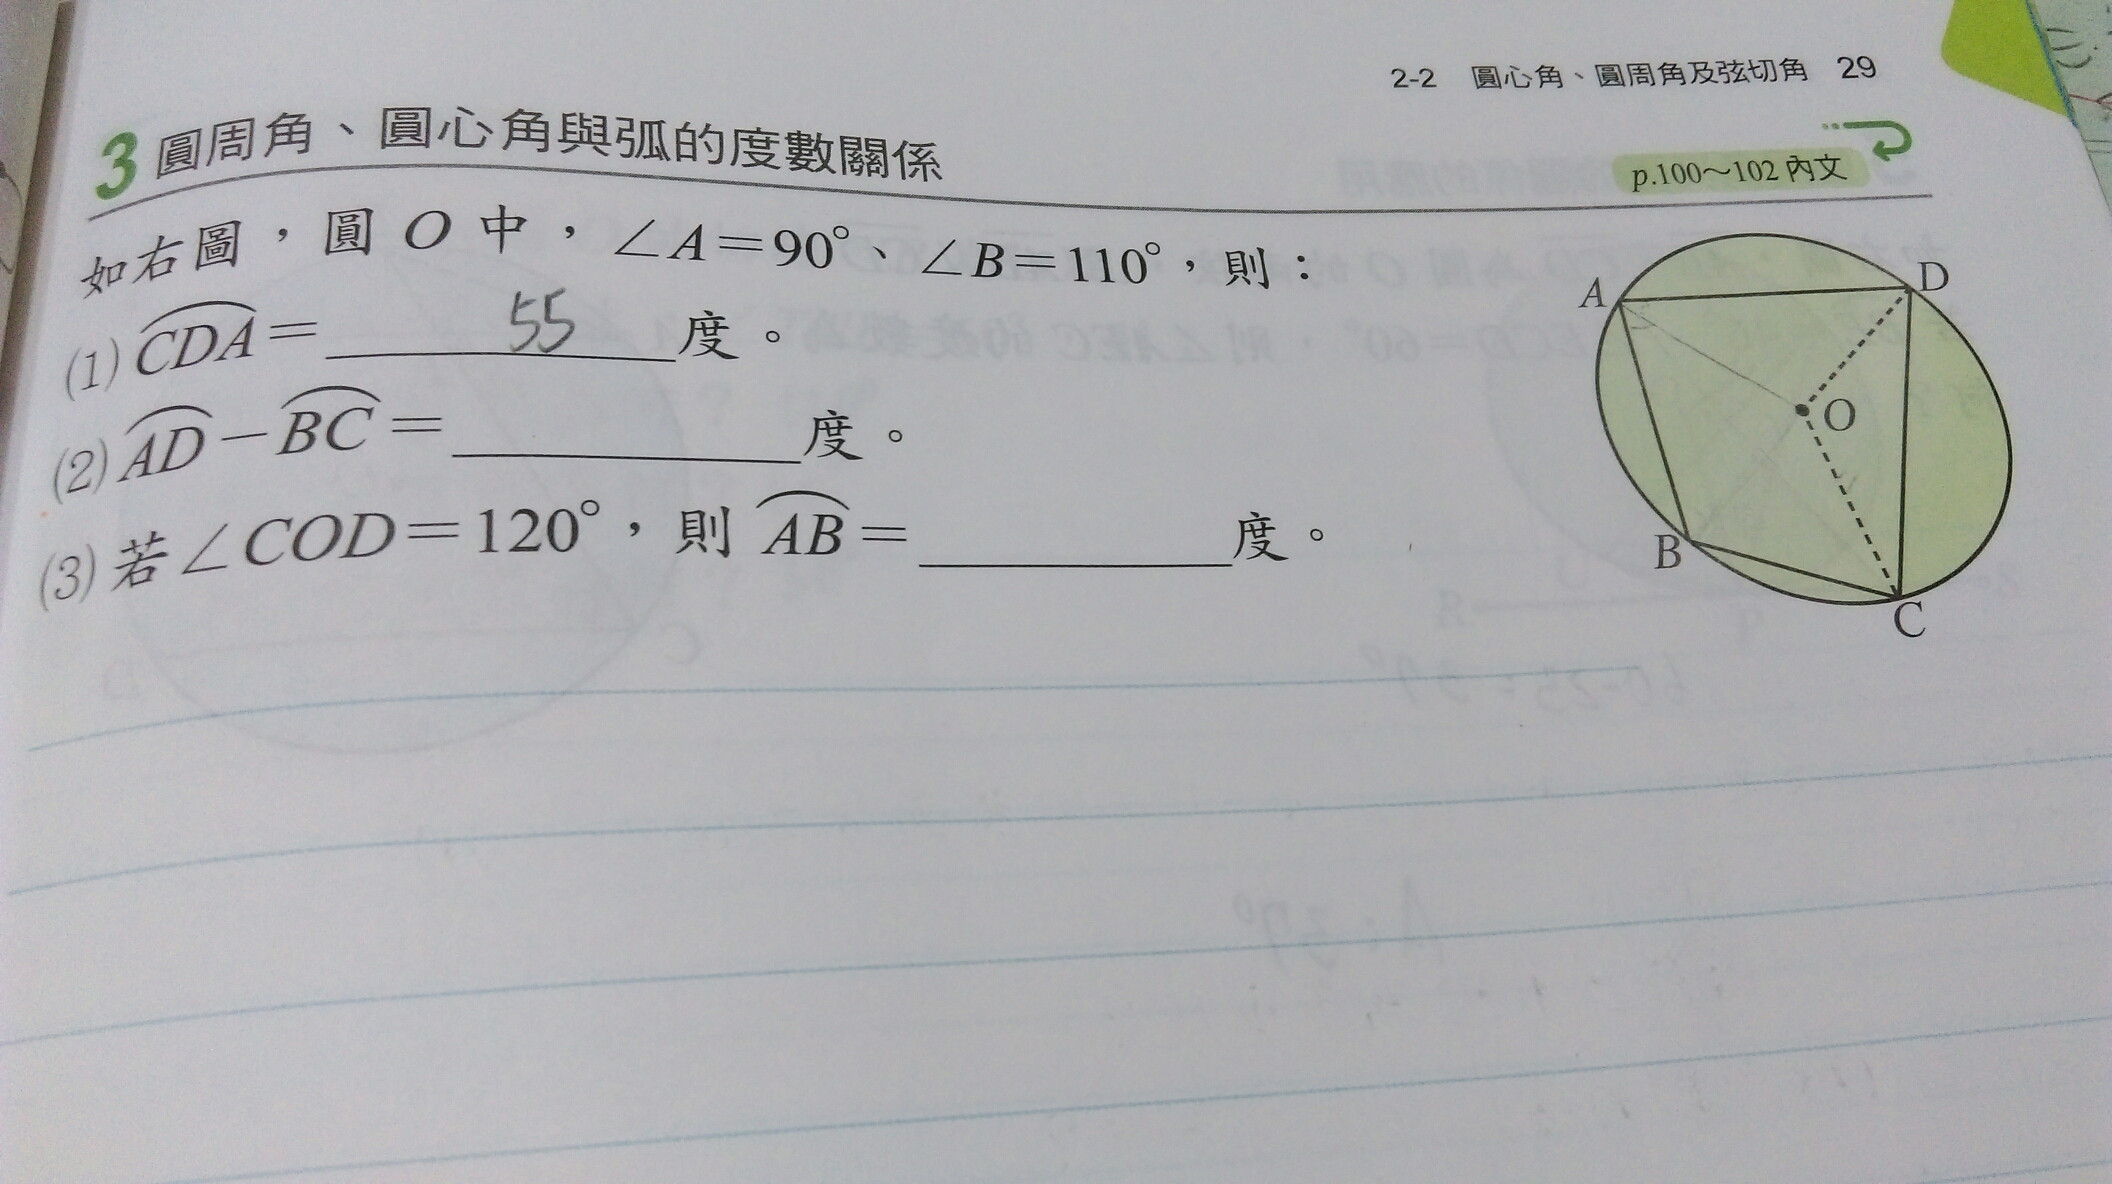 2-2 圓心角、圓周角及弦切角 29
3 圓周角、圓心角與弧的度數關係
p.100～102 內文
如右圖，圓 O 中，∠A=90°、∠B=110°，則：
(1) CDA= 55 度。
(2) AD－BC= 度。
(3) 若∠COD=120°，則 AB= 度。
A
D
O
B
C